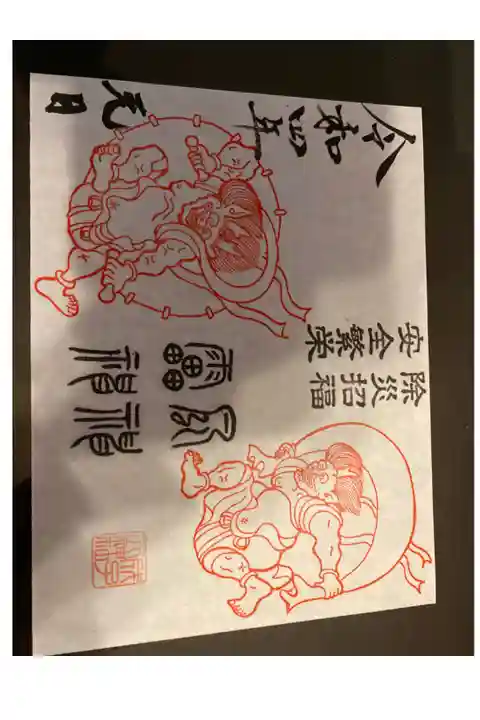 除災招福
安全繁栄
風神
雷神
令和四年
元日